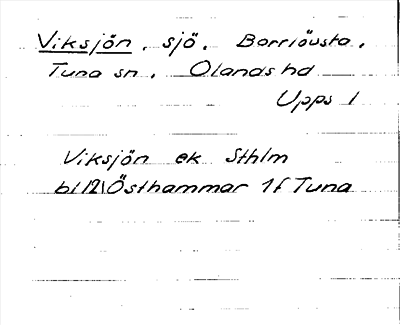 Viksjön, sjö, Borriövsta,
Tuna sn, Olands hd
Upps l
Viksjön ek Sthlm
bl 12\Östhammar 1f Tuna